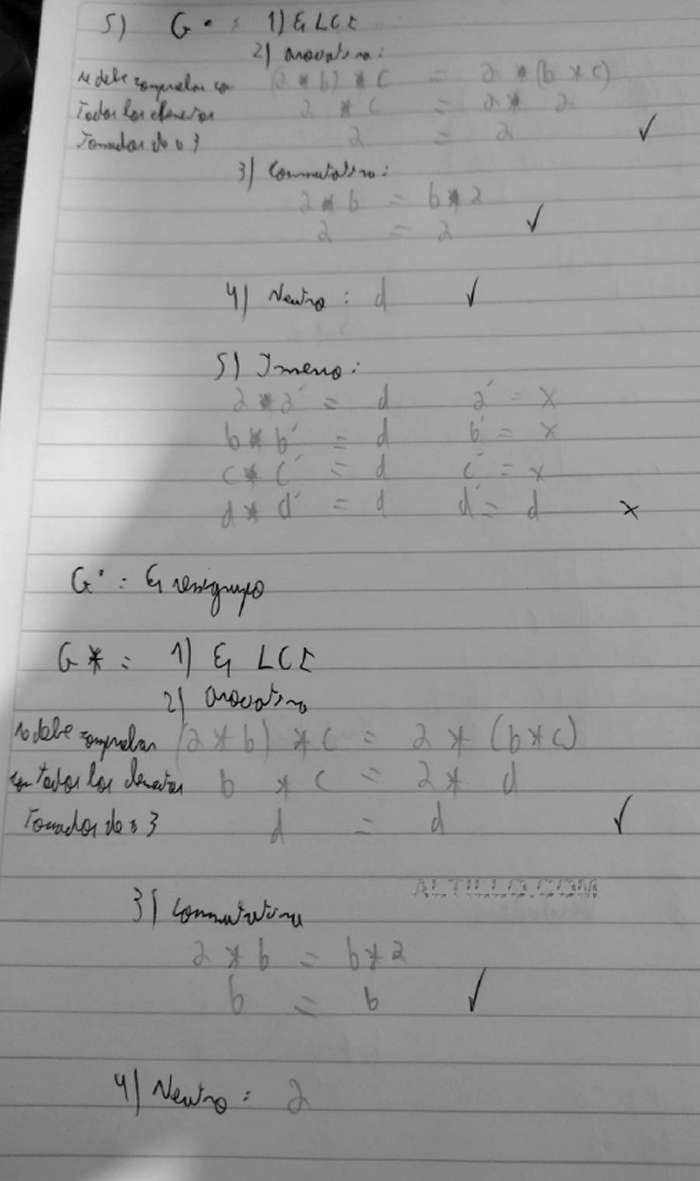 5) G • : 1) Es LCI
2) Asociativa:
se debe comprobar con (a * b) * c = a * (b * c)
Todos los elementos a * c = a * a
Tomados de a 3 a = a ✓
3) Conmutativa:
a * b = b * a
a = a ✓
4) Neutro : d ✓
5) Inverso:
a * a' = d a' = x
b * b' = d b' = x
c * c' = d c' = x
d * d' = d d' = d x
G • : Es semigrupo
G * = 1) Es LCI
2) Asociativa
se debe comprobar (a * b) * c = a * (b * c)
con Todos los elementos b * c = a * d
Tomados de a 3 d = d ✓
ALTILLO.COM
3) Conmutativa
a * b = b * a
b = b ✓
4) Neutro : a